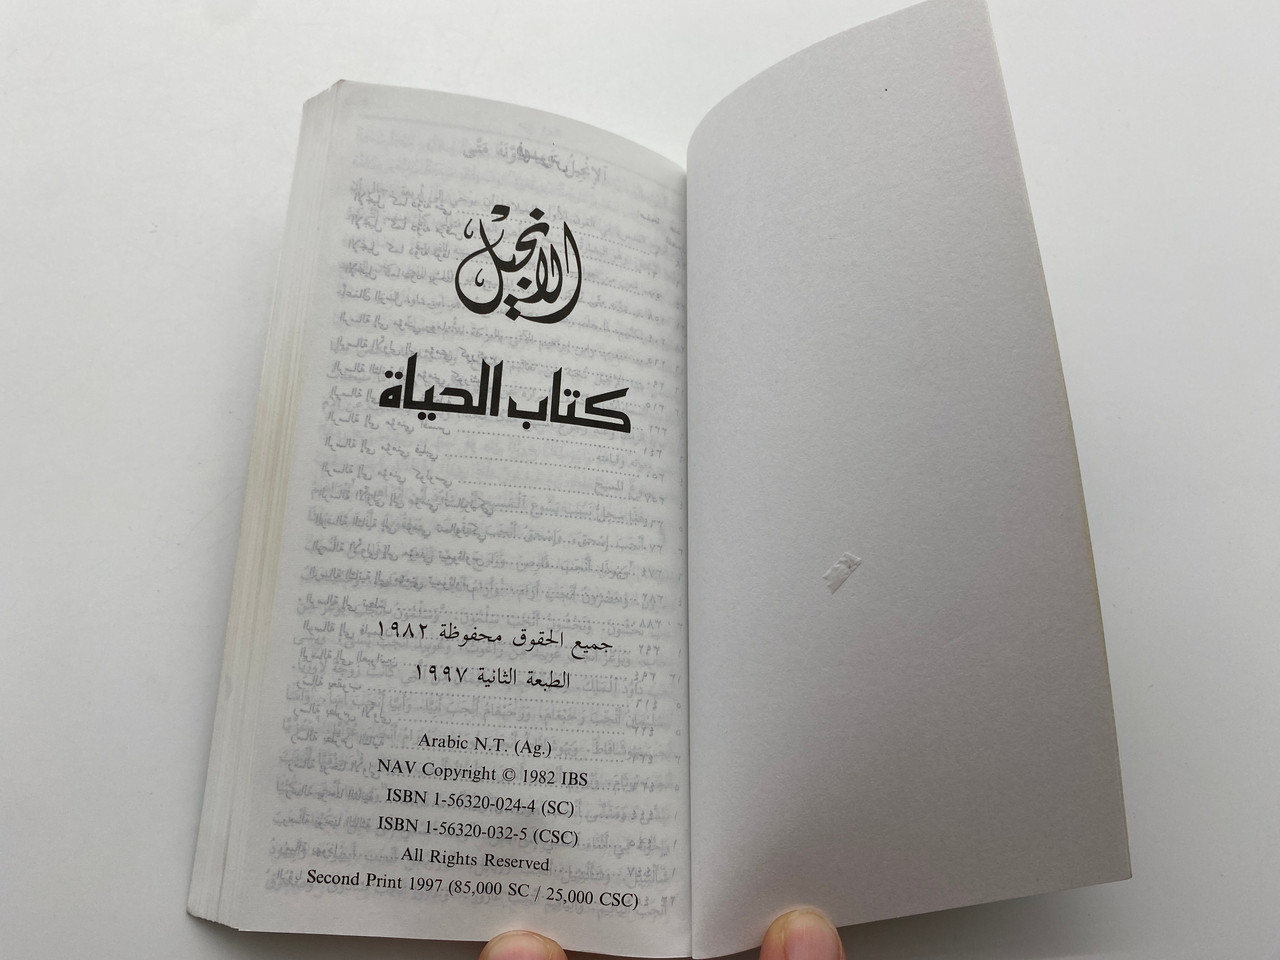 الانجيل
كتاب الحياة
جميع الحقوق محفوظة ١٩٨٢
الطبعة الثانية ١٩٩٧
Arabic N.T. (Ag.)
NAV Copyright © 1982 IBS
ISBN 1-56320-024-4 (SC)
ISBN 1-56320-032-5 (CSC)
All Rights Reserved
Second Print 1997 (85,000 SC / 25,000 CSC)